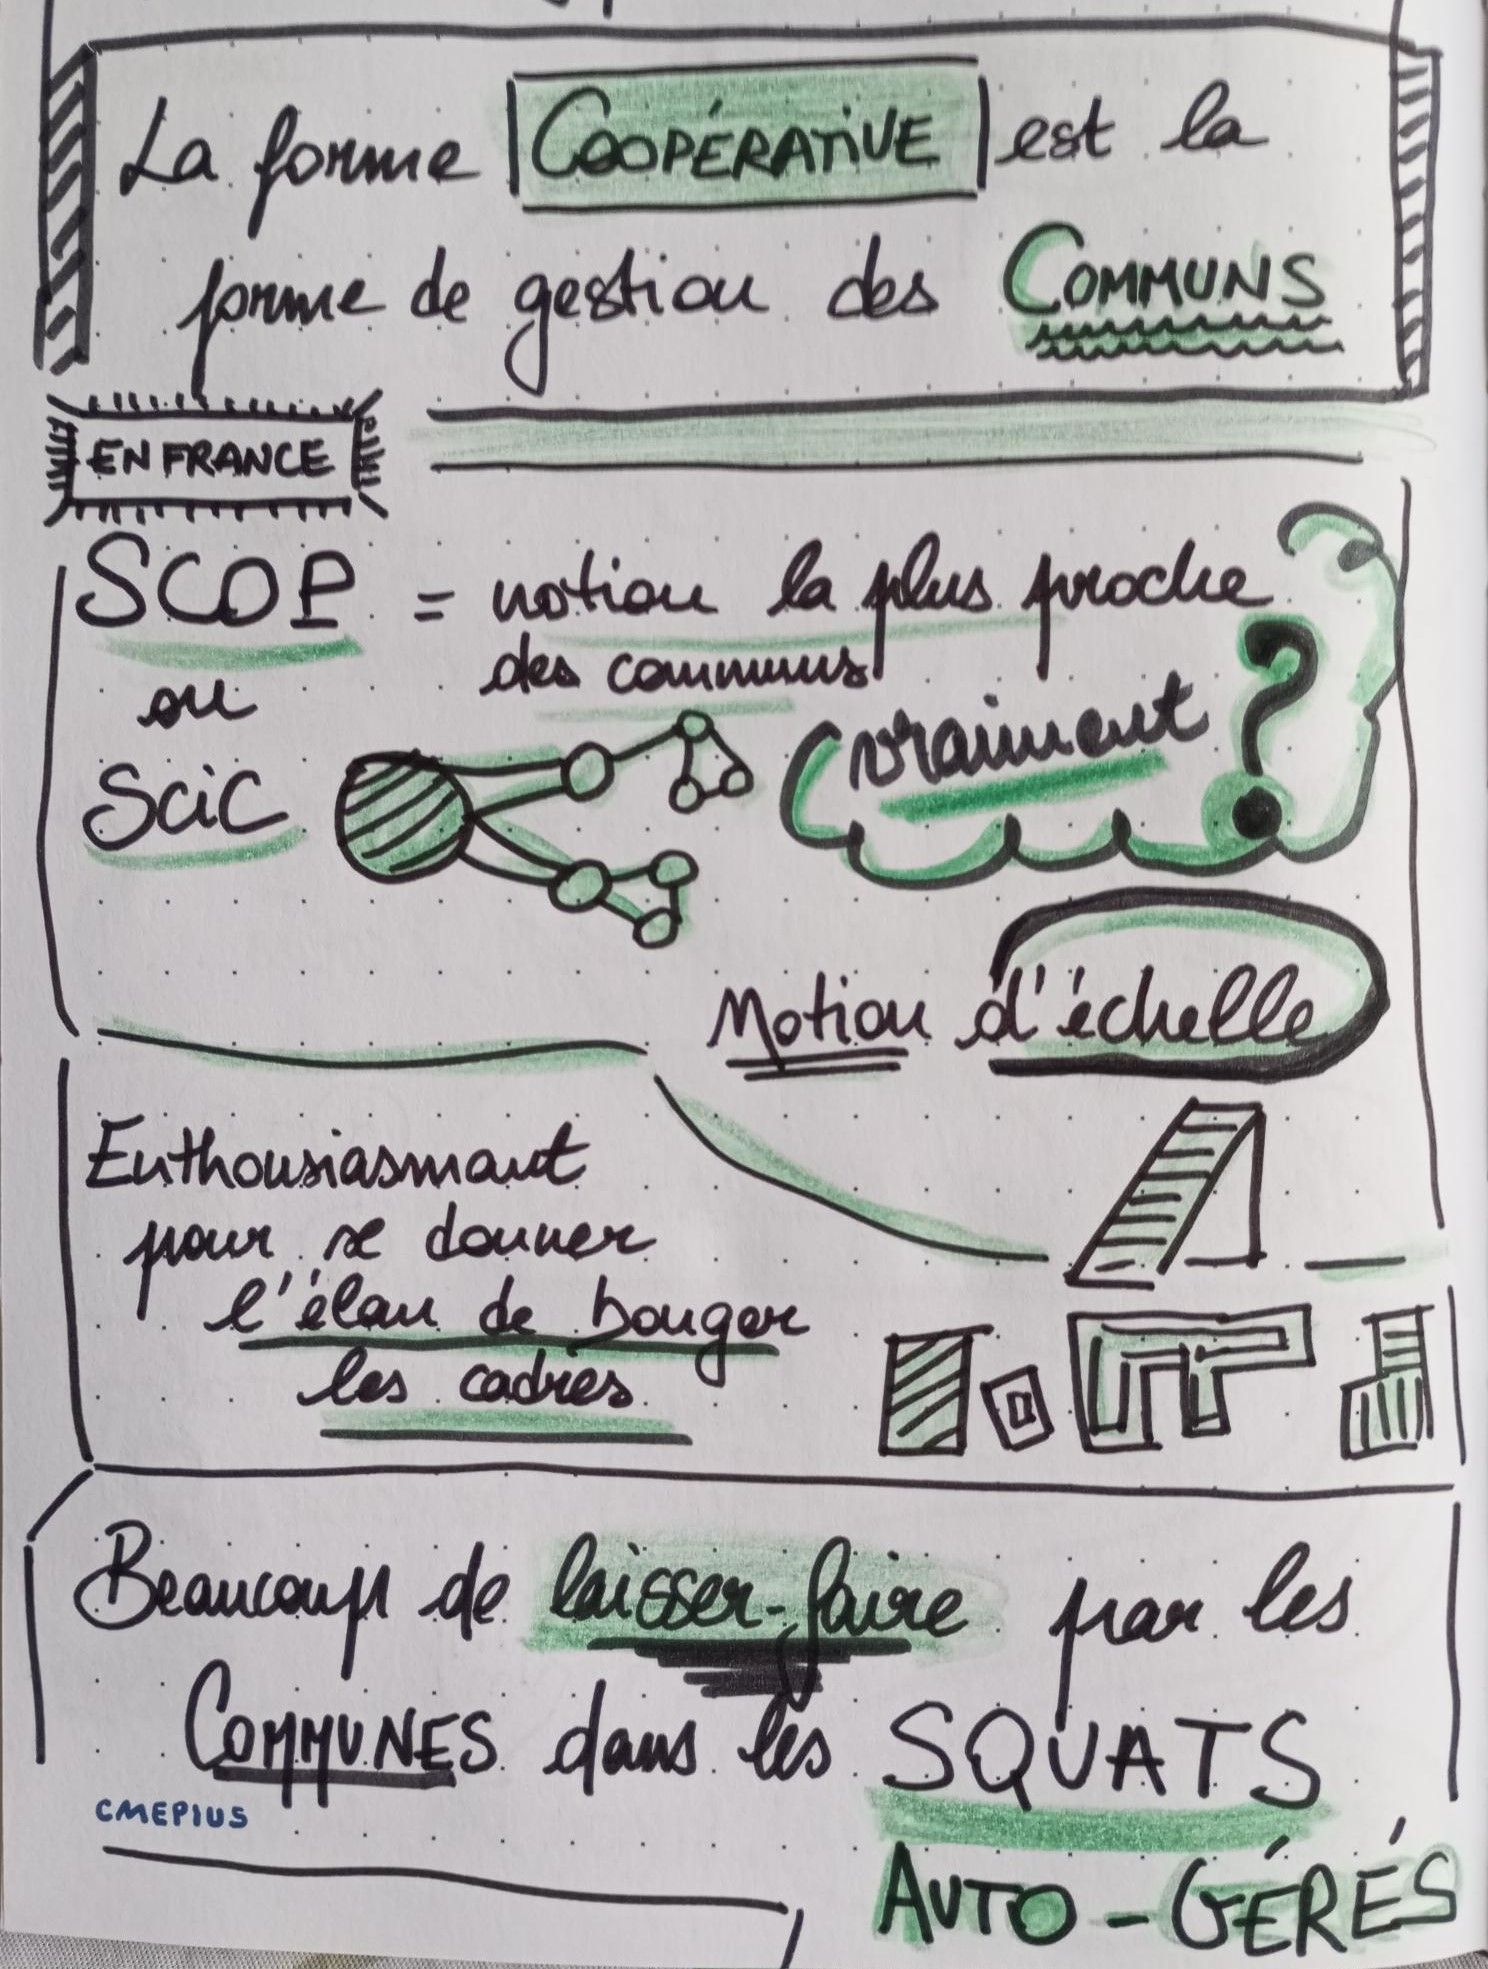 La forme COOPÉRATIVE est la
forme de gestion des COMMUNS
EN FRANCE
SCOP = notion la plus proche
des communs
ou
SCiC
vraiment ?
Notion d'échelle
Enthousiasmant
pour se donner
l'élan de bouger
les cadres
Beaucoup de laisser-faire par les
COMMUNES dans les SQUATS
CMEPIUS
AUTO-GÉRÉS